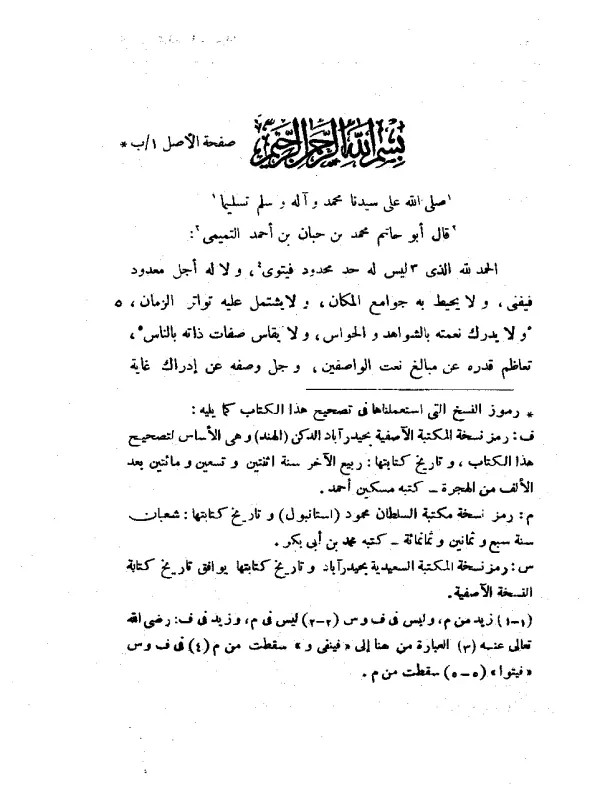 بسم الله الرحمن الرحيم صفحة الأصل ١/ب *
'صلى الله على سيدنا محمد وآله و سلم تسليما'
'قال أبو حاتم محمد بن حبان بن أحمد التميمى':
الحمد لله الذى ٣ ليس له حد محدود فيتوى٤، و لا له أجل معدود
فيفنى، و لا يحيط به جوامع المكان، و لا يشتمل عليه تواتر الزمان، ٥
°و لا يدرك نعمته بالشواهد و الحواس، و لا يقاس صفات ذاته بالناس°،
تعاظم قدره عن مبالغ نعت الواصفين، و جل وصفه عن إدراك غاية
* رموز النسخ التى استعملناها فى تصحيح هذا الكتاب كما يليه:
ف: رمز نسخة المكتبة الآصفية بحيدرآباد الدكن (الهند) و هى الأساس لتصحيح
هذا الكتاب، و تاريخ كتابتها: ربيع الآخر سنة اثنتين و تسعين و مائتين بعد
الألف من الهجرة – كتبه مسكين أحمد.
م: رمز نسخة مكتبة السلطان محمود (استانبول) و تاريخ كتابتها: شعبان
سنة سبع و ثمانين و ثمانمائة – كتبه محمد بن أبى بكر.
س: رمز نسخة المكتبة السعيدية بحيدرآباد و تاريخ كتابتها يوافق تاريخ كتابة
النسخة الآصفية.
(١–١) زيد من م، وليس فى ف و س (٢–٢) ليس فى م، وزيد فى ف: رضى الله
تعالى عنه (٣) العبارة من هنا إلى «فيفنى و» سقطت من م (٤) فى ف و س
«فيتوا» (٥–٥) سقطت من م.